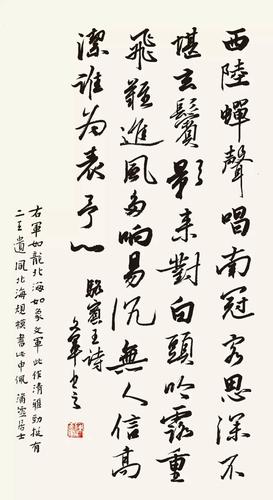 西陸蟬聲唱南冠客思深不
堪玄鬢影來對白頭吟露重
飛難進風多响易沉無人信高
潔誰為表予心
駱賓王詩
文軍書之
右軍如龍北海如象文軍此作清雅勁拔有
二王遺風北海規模書此申佩 居士